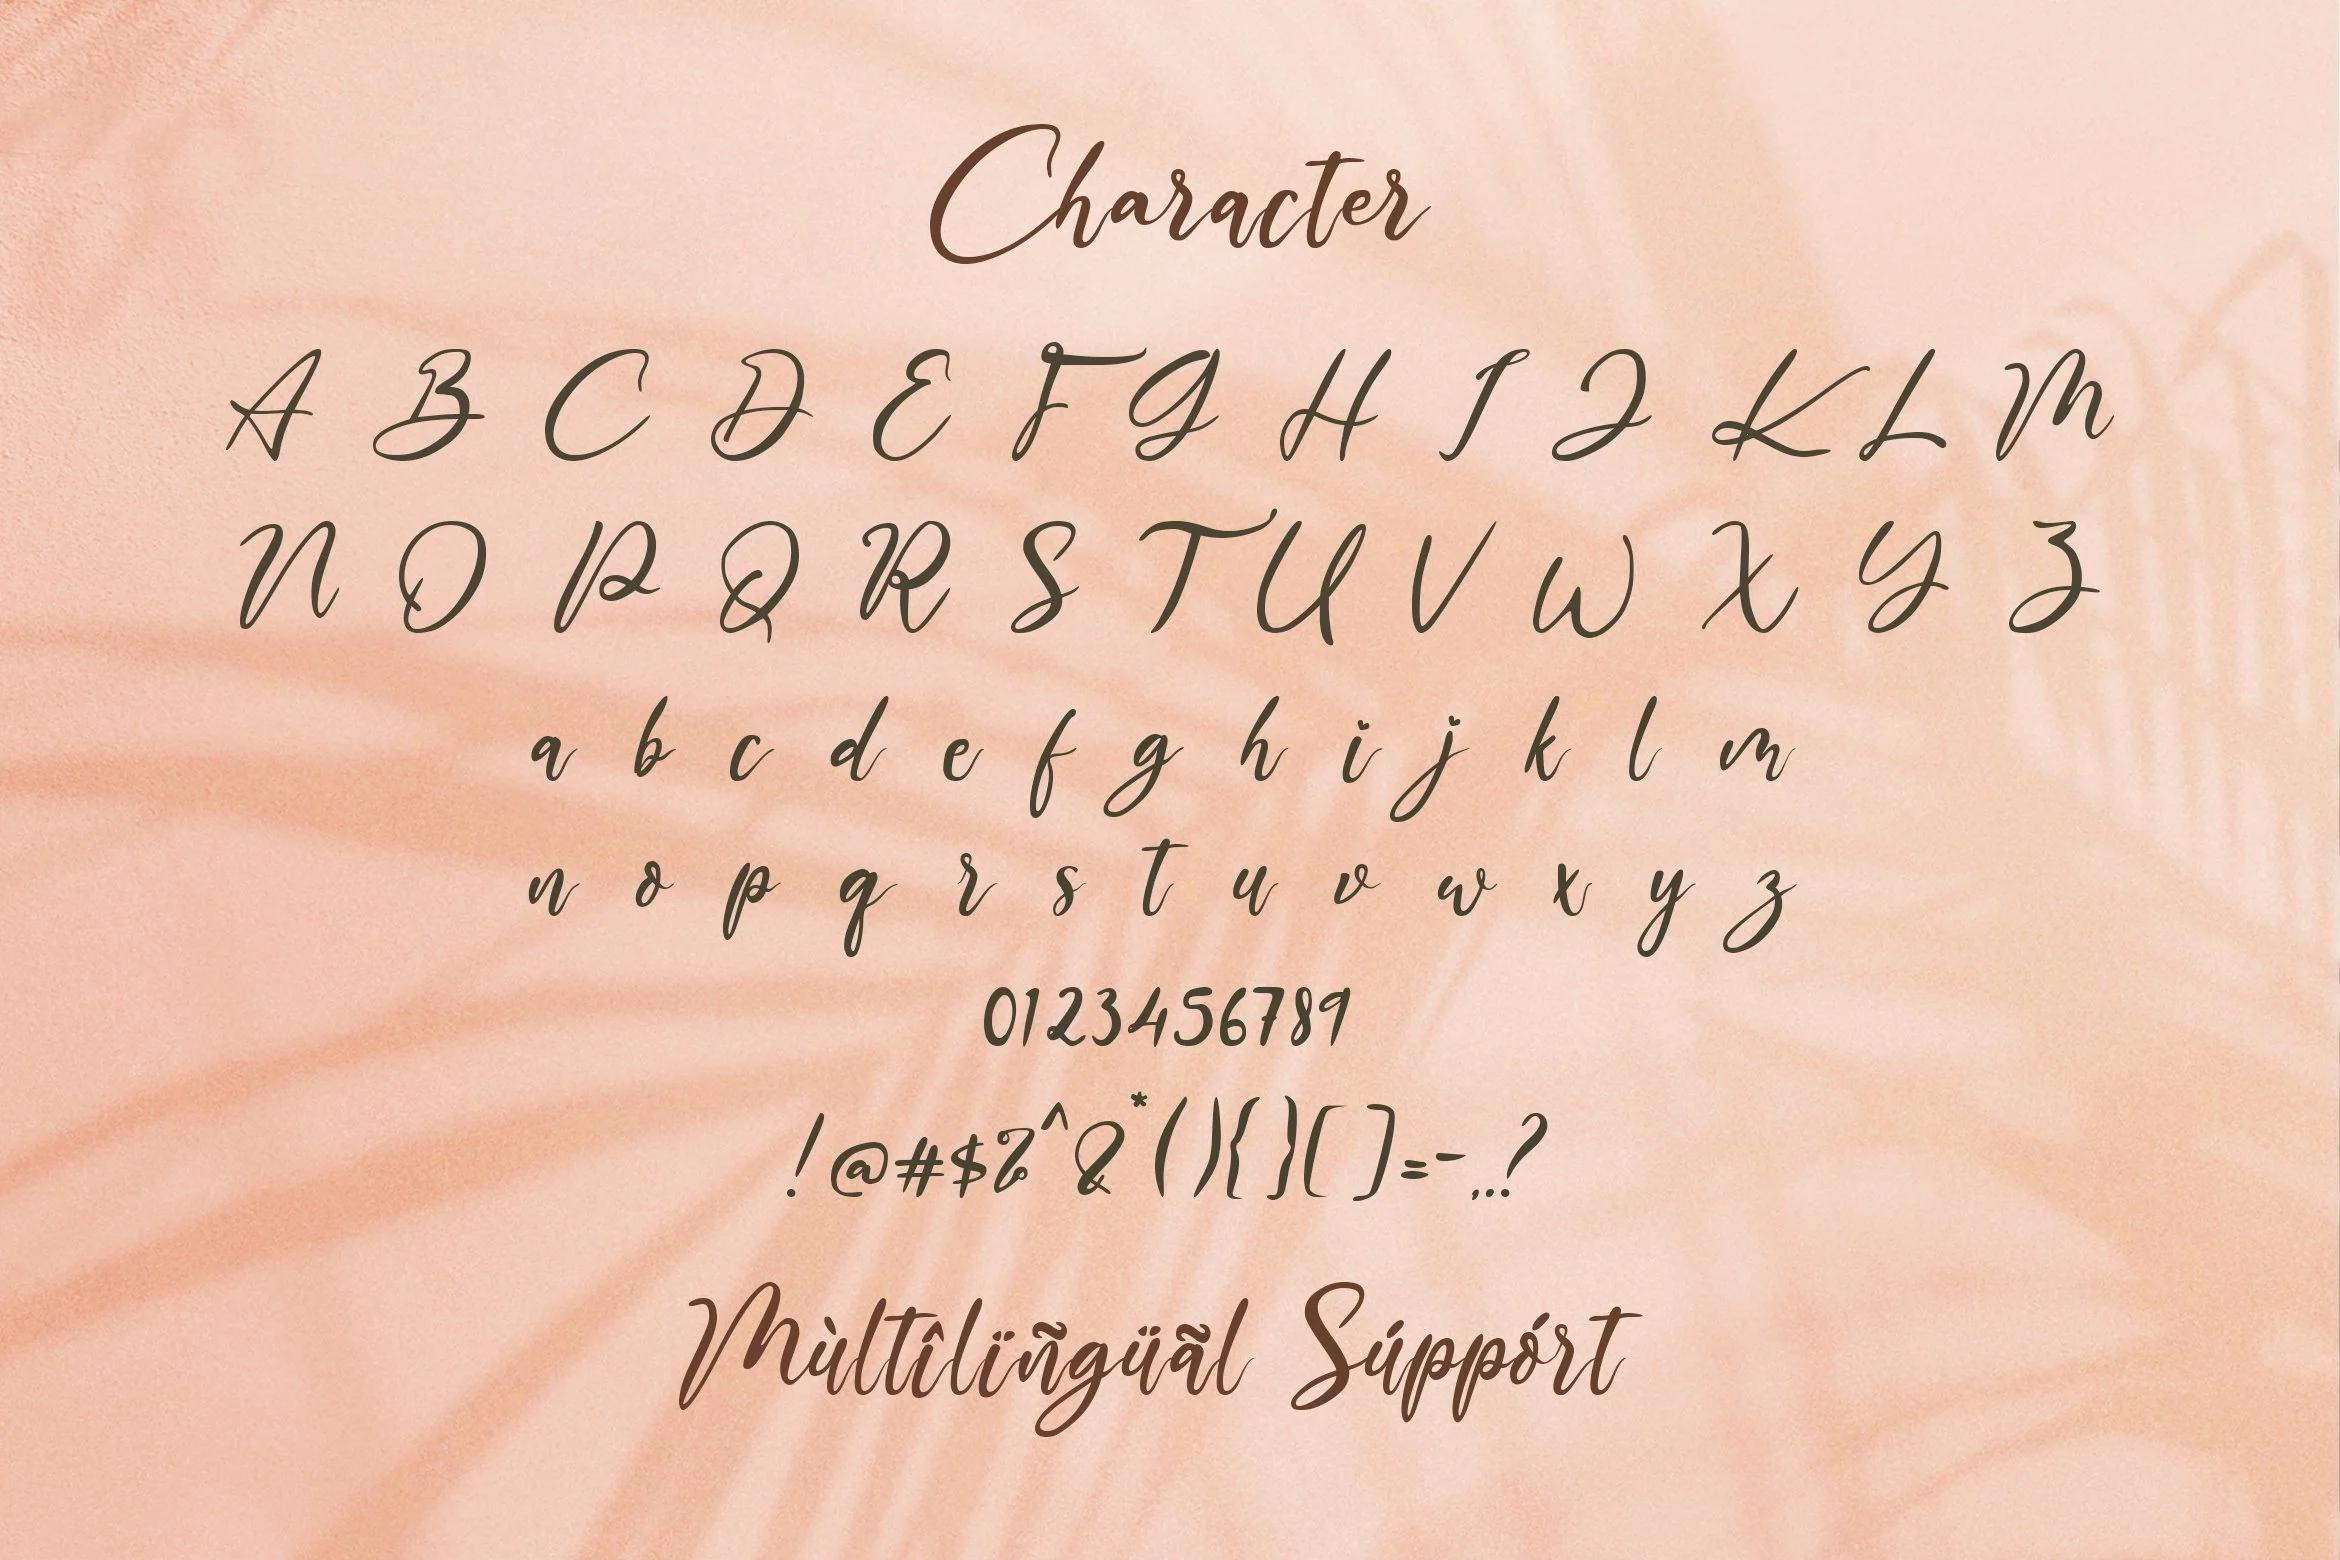 Character
A B C D E F G H I J K L M
N O P Q R S T U V W X Y Z
a b c d e f g h i j k l m
n o p q r s t u v w x y z
0123456789
!@#$%^&*(){}[]=-,..?
Mùltîlïñgüãl Súppórt